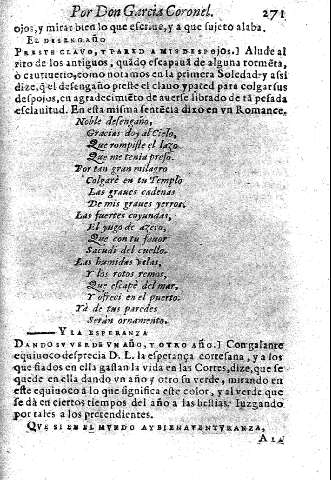 Por Don Garcia Coronel. 271
ojos, y mirar bien lo que escriue, y a que sujeto alaba.
EL DESENGAÑO
PRESTE CLAVO, Y PARED A MIS DESPOJOS.] Alude al
rito de los antiguos, quãdo escapauã de alguna tormẽta,
ò cautiuerio, como notamos en la primera Soledad: y assi
dize, q̃ el desengaño preste el clauo y pared para colgar sus
despojos, en agradecimiẽto de auerse librado de tã pesada
esclauitud. En esta misma sentẽcia dixo en vn Romance.
Noble desengaño,
Gracias doy al Cielo,
Que rompiste el lazo
Que me tenia preso.
Por tan gran milagro
Colgarè en tu Templo
Las graues cadenas
De mis graues yerros.
Las fuertes coyundas,
El yugo de azero,
Que con tu fauor
Sacudi del cuello.
Las humidas velas,
Y los rotos remos,
Que escapè del mar,
Y ofreci en el puerto.
Yà de tus paredes
Seràn ornamento.
Y LA ESPERANZA
DANDO SV VERDE VN AÑO, Y OTRO AÑO.] Con galante
equiuoco desprecia D. L. la esperança cortesana, y a los
que fiados en ella gastan la vida en las Cortes, dize, que se
quede en ella dando vn año y otro su verde, mirando en
este equiuoco à lo que significa este color, y al verde que
se dà en ciertos tiempos del año a las bestias. Iuzgando
por tales a los pretendientes.
QVE SI EN EL MVNDO AY BIENAVENTVRANZA,
A la